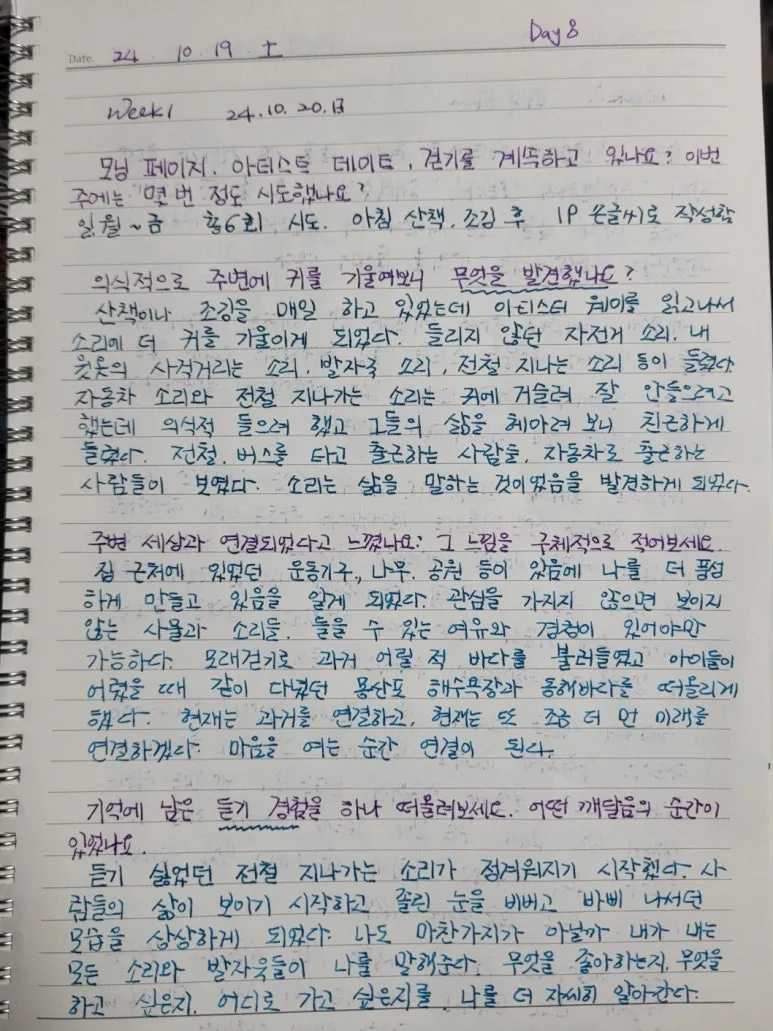 Day 8
Date. 24 . 10 . 19 . 土
Week 1 24. 10. 20. 日
모닝 페이지. 아티스트 데이트, 걷기를 계속하고 있나요? 이번
주에는 몇 번 정도 시도했나요?
일,월~금 총6회 시도. 아침 산책, 조깅 후 1P 손글씨로 작성함
의식적으로 주변에 귀를 기울여보니 무엇을 발견했나요?
산책이나 조깅을 매일 하고 있었는데 아티스터 웨이를 읽고나서
소리에 더 귀를 기울이게 되었다. 들리지 않던 자전거 소리. 내
웃옷의 사각거리는 소리, 발자국 소리, 전철 지나는 소리 등이 들렸다.
자동차 소리와 전철 지나가는 소리는 귀에 거슬려 잘 안들으려고
했는데 의식적 들으려 했고 그들의 삶을 헤아려 보니 친근하게
들렸다. 전철, 버스를 타고 출근하는 사람들, 자동차로 출근하는
사람들이 보였다. 소리는 삶을 말하는 것이었음을 발견하게 되었다.
주변 세상과 연결되었다고 느꼈나요? 그 느낌을 구체적으로 적어보세요.
집 근처에 있었던 운동기구, 나무. 공원 등이 있음에 나를 더 풍성
하게 만들고 있음을 알게 되었다. 관심을 가지지 않으면 보이지
않는 사물과 소리들. 들을 수 있는 여유와 경청이 있어야만
가능하다. 모래걷기로 과거 어릴 적 바다를 불러들였고 아이들이
어렸을 때 같이 다녔던 몽산포 해수욕장과 동해바다를 떠올리게
했다. 현재는 과거를 연결하고, 현재는 또 조금 더 먼 미래를
연결하겠다. 마음을 여는 순간 연결이 된다.
기억에 남은 듣기 경험을 하나 떠올려보세요. 어떤 깨달음의 순간이
있었나요.
듣기 싫었던 전철 지나가는 소리가 정겨워지기 시작했다. 사
람들의 삶이 보이기 시작하고 졸린 눈을 비비고 바삐 나서던
모습을 상상하게 되었다. 나도 마찬가지가 아닐까 내가 내는
모든 소리와 발자욱들이 나를 말해준다. 무엇을 좋아하는지, 무엇을
하고 싶은지, 어디로 가고 싶은지를, 나를 더 자세히 알아간다.